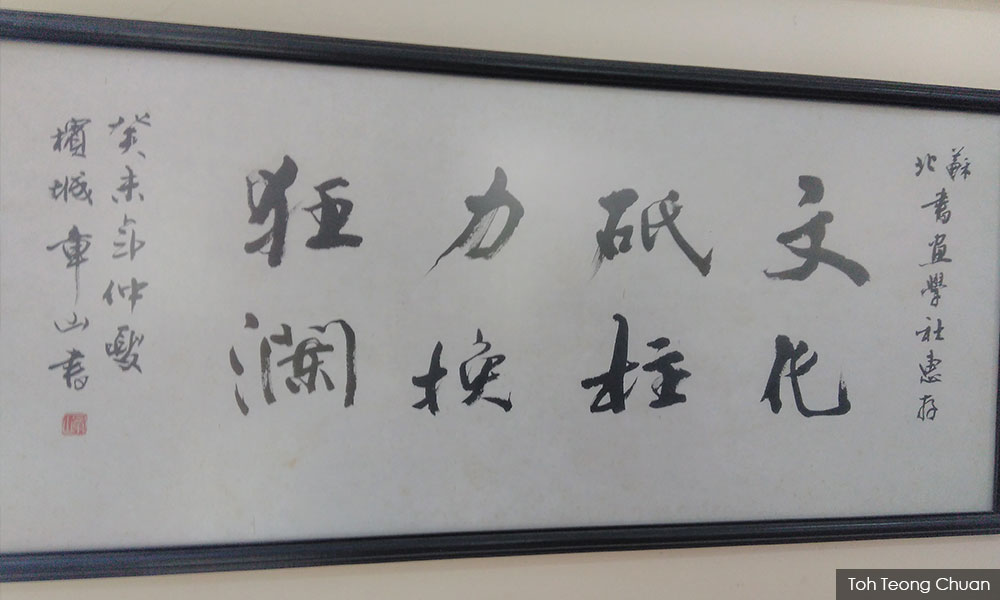 蘇北書畫學社惠存
文化
砥柱
力挽
狂瀾
癸未年仲夏
檳城山書
Toh Teong Chuan